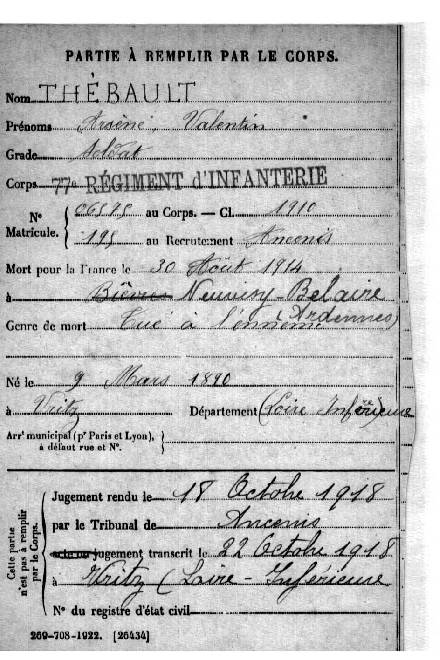 PARTIE À REMPLIR PAR LE CORPS.
Nom THÉBAULT
Prénoms Arsène, Valentin
Grade Soldat
Corps 77e RÉGIMENT d'INFANTERIE
N° Matricule. { 06575 au Corps. — Cl. 1910
195 au Recrutement Ancenis
Mort pour la France le 30 Août 1914
à Bièvres Neuvizy-Belaire
(Ardennes)
Genre de mort Tué à l'ennemi
Né le 9 Mars 1890
à Vritz Département (Loire Inférieure
Arrt municipal (pr Paris et Lyon), à défaut rue et N°. }
Cette partie n'est pas à remplir par le Corps.
Jugement rendu le 18 Octobre 1918
par le Tribunal de Ancenis
acte ou jugement transcrit le 22 Octobre 1918
à Vritz (Loire-Inférieure
N° du registre d'état civil
269-708-1922. [26434]